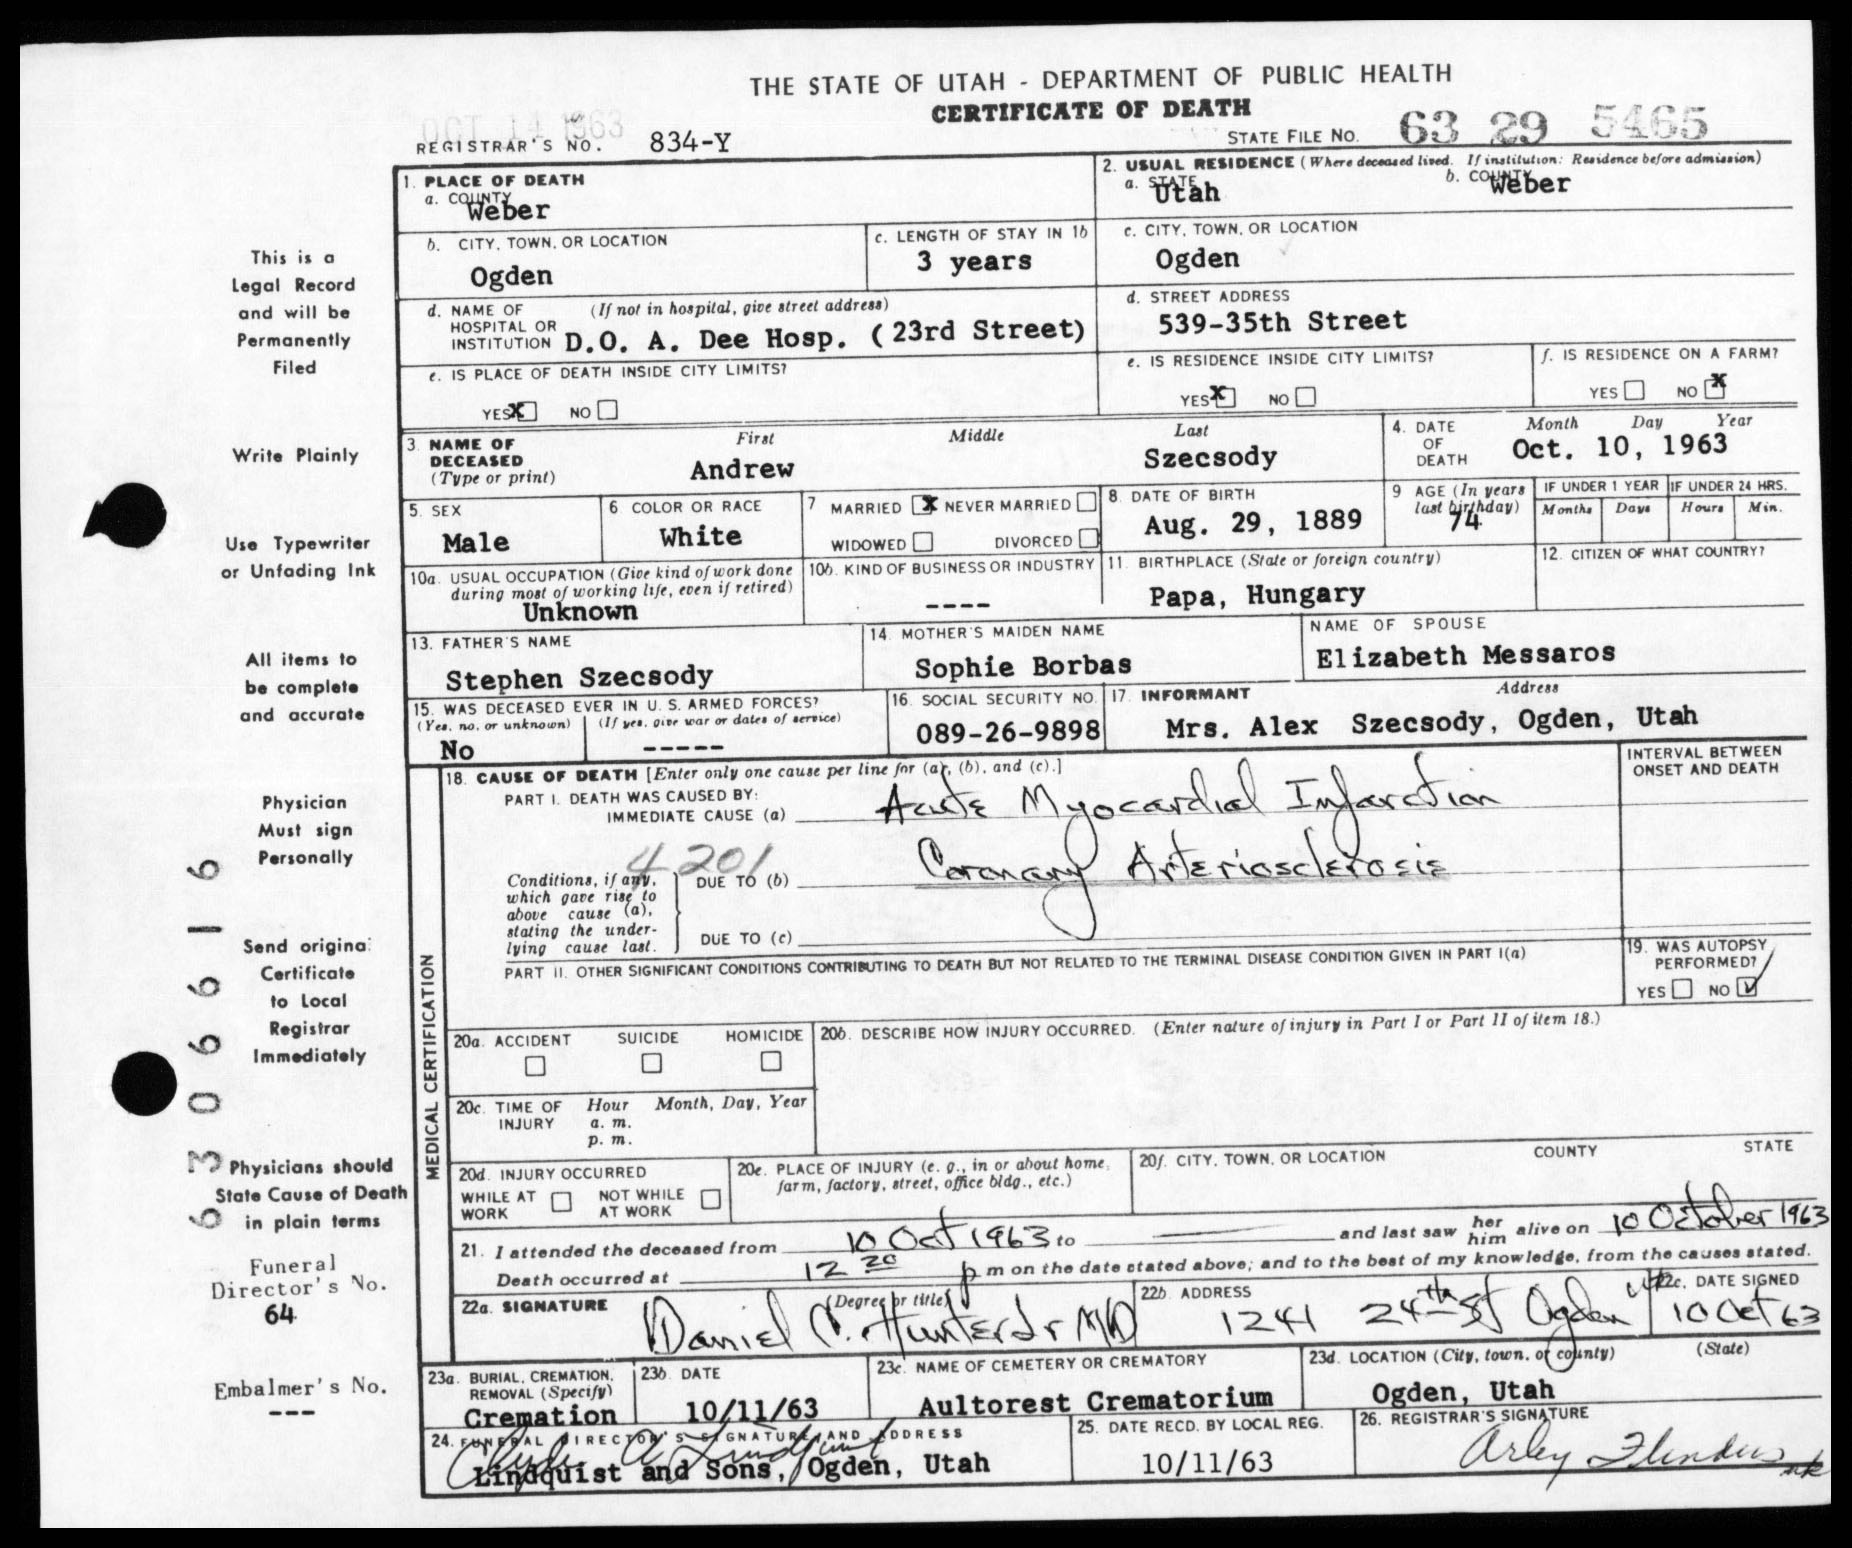 THE STATE OF UTAH - DEPARTMENT OF PUBLIC HEALTH
CERTIFICATE OF DEATH
OCT 14 1963
REGISTRAR'S NO. 834-Y
STATE FILE NO. 63 29 5465
1. PLACE OF DEATH
a. COUNTY
Weber
2. USUAL RESIDENCE (Where deceased lived. If institution: Residence before admission)
a. STATE
Utah
b. COUNTY
Weber
b. CITY, TOWN, OR LOCATION
Ogden
c. LENGTH OF STAY IN 1b
3 years
c. CITY, TOWN, OR LOCATION
Ogden
d. NAME OF HOSPITAL OR INSTITUTION (If not in hospital, give street address)
D.O. A. Dee Hosp. (23rd Street)
d. STREET ADDRESS
539-35th Street
e. IS PLACE OF DEATH INSIDE CITY LIMITS?
YES X NO
e. IS RESIDENCE INSIDE CITY LIMITS?
YES X NO
f. IS RESIDENCE ON A FARM?
YES NO X
3. NAME OF DECEASED (Type or print)
First Middle Last
Andrew Szecsody
4. DATE OF DEATH
Month Day Year
Oct. 10, 1963
5. SEX
Male
6 COLOR OR RACE
White
7 MARRIED X NEVER MARRIED
WIDOWED DIVORCED
8. DATE OF BIRTH
Aug. 29, 1889
9 AGE (In years last birthday)
74
IF UNDER 1 YEAR
Months Days
IF UNDER 24 HRS.
Hours Min.
10a. USUAL OCCUPATION (Give kind of work done during most of working life, even if retired)
Unknown
10b. KIND OF BUSINESS OR INDUSTRY
----
11. BIRTHPLACE (State or foreign country)
Papa, Hungary
12. CITIZEN OF WHAT COUNTRY?
13. FATHER'S NAME
Stephen Szecsody
14. MOTHER'S MAIDEN NAME
Sophie Borbas
NAME OF SPOUSE
Elizabeth Messaros
15. WAS DECEASED EVER IN U. S. ARMED FORCES?
(Yes, no, or unknown) (If yes, give war or dates of service)
No -----
16. SOCIAL SECURITY NO.
089-26-9898
17. INFORMANT Address
Mrs. Alex Szecsody, Ogden, Utah
MEDICAL CERTIFICATION
18. CAUSE OF DEATH [Enter only one cause per line for (a), (b), and (c).]
INTERVAL BETWEEN ONSET AND DEATH
PART I. DEATH WAS CAUSED BY:
IMMEDIATE CAUSE (a) Acute Myocardial Infarction
4201
Conditions, if any, which gave rise to above cause (a), stating the underlying cause last.
DUE TO (b) Coronary Arteriosclerosis
DUE TO (c)
PART II. OTHER SIGNIFICANT CONDITIONS CONTRIBUTING TO DEATH BUT NOT RELATED TO THE TERMINAL DISEASE CONDITION GIVEN IN PART I(a)
19. WAS AUTOPSY PERFORMED?
YES NO ✓
20a. ACCIDENT SUICIDE HOMICIDE
20b. DESCRIBE HOW INJURY OCCURRED. (Enter nature of injury in Part I or Part II of item 18.)
20c. TIME OF INJURY
Hour Month, Day, Year
a. m.
p. m.
20d. INJURY OCCURRED
WHILE AT WORK NOT WHILE AT WORK
20e. PLACE OF INJURY (e. g., in or about home, farm, factory, street, office bldg., etc.)
20f. CITY, TOWN, OR LOCATION COUNTY STATE
21. I attended the deceased from 10 Oct 1963 to and last saw her him alive on 10 October 1963
Death occurred at 12 20 p m on the date stated above; and to the best of my knowledge, from the causes stated.
22a. SIGNATURE (Degree or title)
Daniel C. Hunter Jr MD
22b. ADDRESS
1241 24th St Ogden Ut
22c. DATE SIGNED
10 Oct 63
23a. BURIAL, CREMATION, REMOVAL (Specify)
Cremation
23b. DATE
10/11/63
23c. NAME OF CEMETERY OR CREMATORY
Aultorest Crematorium
23d. LOCATION (City, town, or county) (State)
Ogden, Utah
24. FUNERAL DIRECTOR'S SIGNATURE AND ADDRESS
Clyde A Lindquist
Lindquist and Sons, Ogden, Utah
25. DATE RECD. BY LOCAL REG.
10/11/63
26. REGISTRAR'S SIGNATURE
Arley Flinders
This is a
Legal Record
and will be
Permanently
Filed
Write Plainly
Use Typewriter
or Unfading Ink
All items to
be complete
and accurate
Physician
Must sign
Personally
Send original
Certificate
to Local
Registrar
Immediately
Physicians should
State Cause of Death
in plain terms
Funeral
Director's No.
64
Embalmer's No.
---
6306616